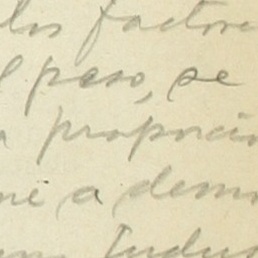 los factore
peso, se
proporcio
a demo
Indus